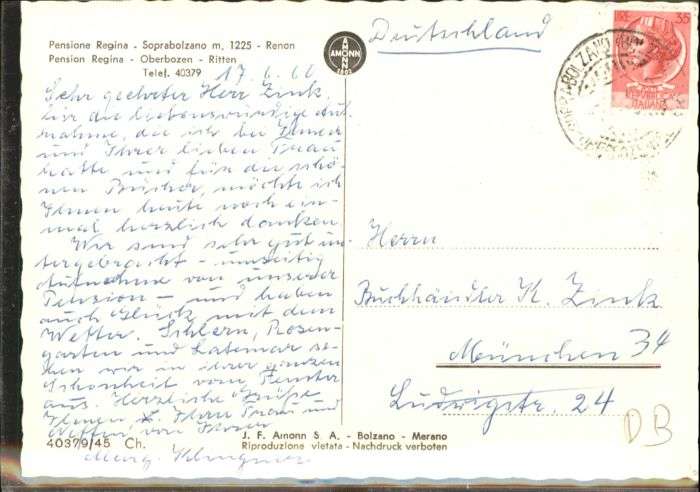 Pensione Regina - Soprabolzano m. 1225 - Renon
Pension Regina - Oberbozen - Ritten
Telef. 40379
AMONN
17.6.66
Sehr geehrter Herr Zink,
für die liebenswürdige Auf-
nahme, die ich bei Ihnen
und Ihrer lieben Frau
hatte und für die schö-
nen Bücher, möchte ich
Ihnen heute noch ein-
mal herzlich danken.
Wir sind sehr gut un-
tergebracht - umseitig
Aufnahme von unserer
Pension - und haben
auch Glück mit dem
Wetter. Schlern, Rosen-
garten und Latemar se-
hen wir in ihrer ganzen
Schönheit vom Fenster
aus. Herzliche Grüße
Ihnen, Ihrer Frau und
von Ihrer
40379/45 Ch.
Deutschland
LIRE 35
ITALIANA
BOLZANO
Herrn
Buchhändler K. Zink
München 34
Ludwigstr. 24
DB
J. F. Amonn S A. - Bolzano - Merano
Riproduzione vietata - Nachdruck verboten